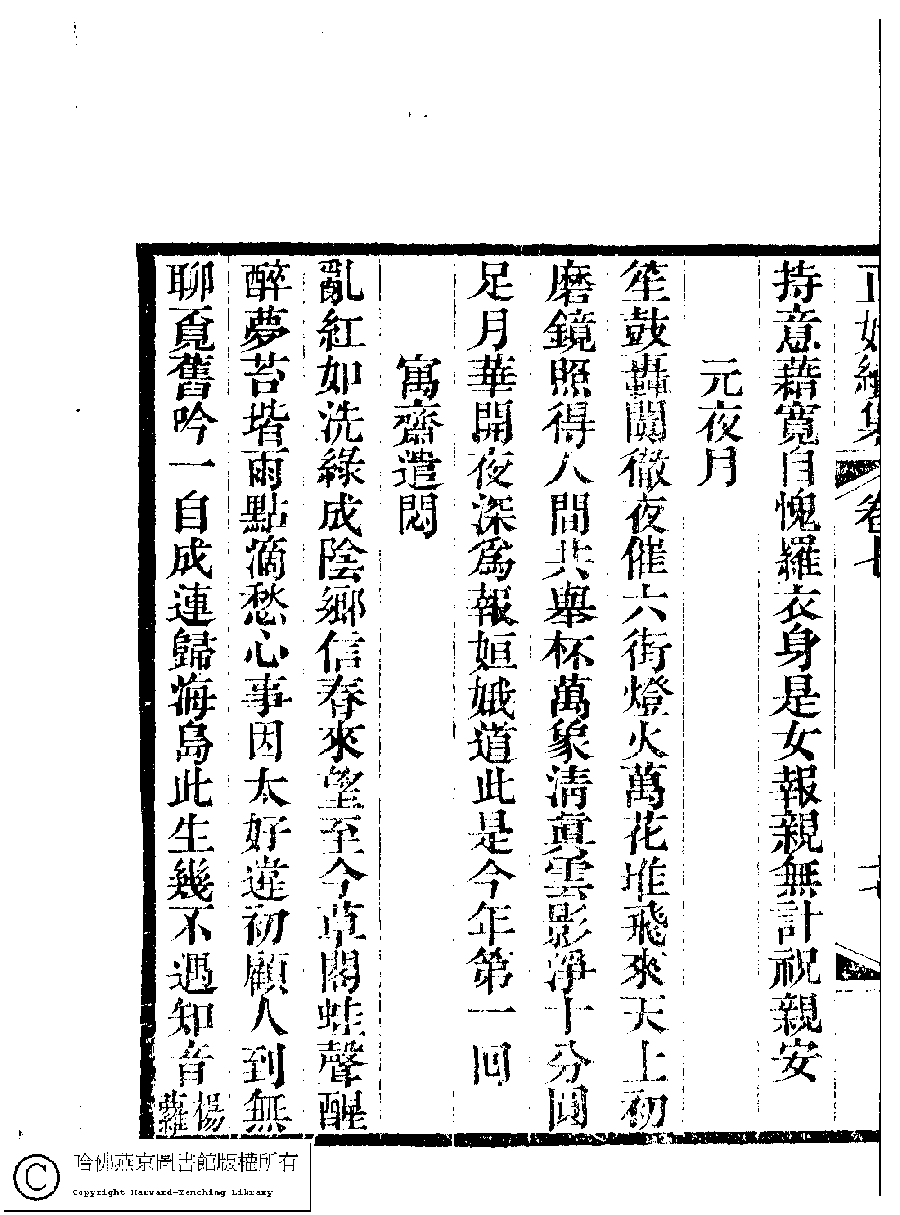 正始續集 卷七
持意藉寬自愧羅衣身是女報親無計祝親安
元夜月
笙鼓轟闐徹夜催六街燈火萬花堆飛來天上初
磨鏡照得人間共舉杯萬象清眞雲影淨十分圓
足月華開夜深爲報姮娥道此是今年第一回
寓齋遣悶
亂紅如洗綠成陰鄉信春來望至今草閣蛙聲醒
醉夢苔堦雨點滴愁心事因太好違初願人到無
聊覓舊吟一自成連歸海島此生幾不遇知音楊蘿
哈佛燕京圖書館版權所有
Copyright Harvard-Yenching Library